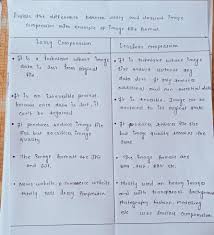 Explain the difference between lossy and lossless Image
compression with example of Image file format.
Lossy Compression
• It is a technique where Image
data is lost from original
file
• It is an irreversible process
because once data is lost, it
can't be regained
• It produces reduced Image
file but sacrifices Image
quality
• The Image format are JPG
and GIF.
• News website, e-commerce website
mostly uses lossy Compression
Lossless compression
• It is technique where Image
file reduced without any
data loss. It only removes
additional and non essential data
• It is reversible. Image can be
restored to its original state
• It produces reduced file size
but Image quality remains the
same
• The Image formats are
• Mostly used on heavy Images
and with transparent background
Photography, fashion, modeling
etc. uses lossless compression.